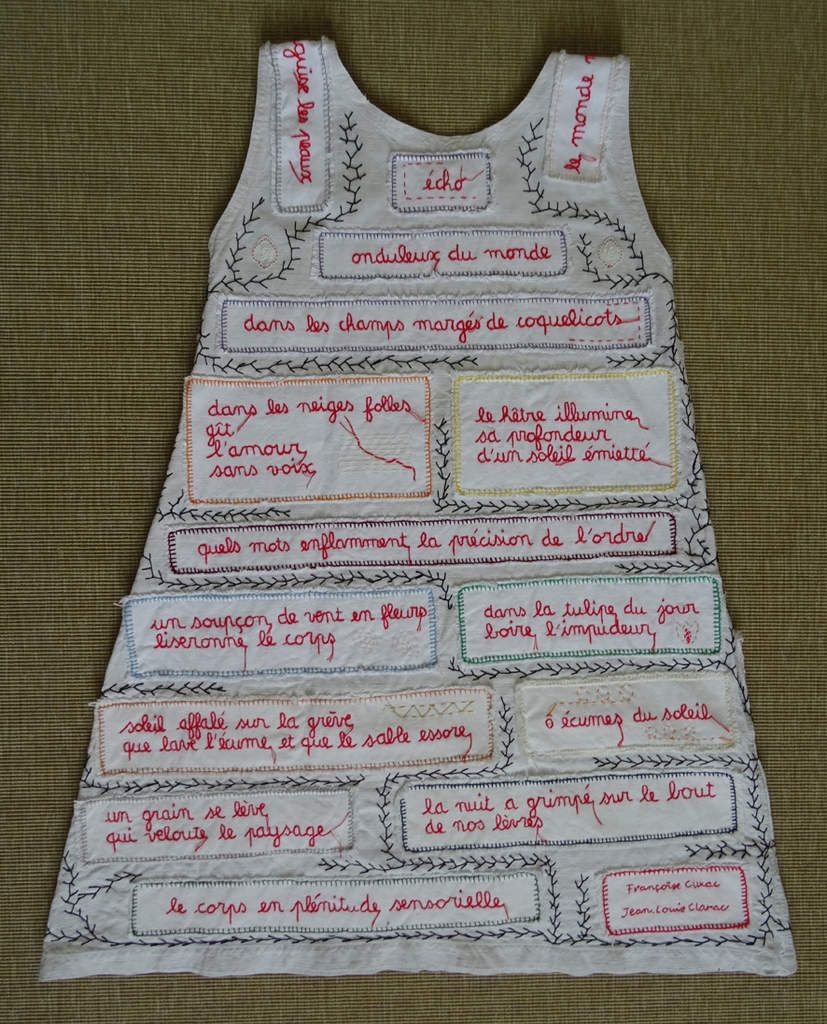 guise les peaux
le monde
écho
onduleux du monde
dans les champs margés de coquelicots
dans les neiges folles
gît
l'amour
sans voix
le hêtre illumine
sa profondeur
d'un soleil émietté
quels mots enflamment la précision de l'ordre
un soupçon de vent en fleurs
liseronne le corps
dans la tulipe du jour
boire l'impudeur
soleil affalé sur la grève
que lave l'écume et que le sable essore
ô écumes du soleil
un grain se lève
qui veloute le paysage
la nuit a grimpé sur le bout
de nos lèvres
le corps en plénitude sensorielle
Françoise Cuxac
Jean-Louis Clarac